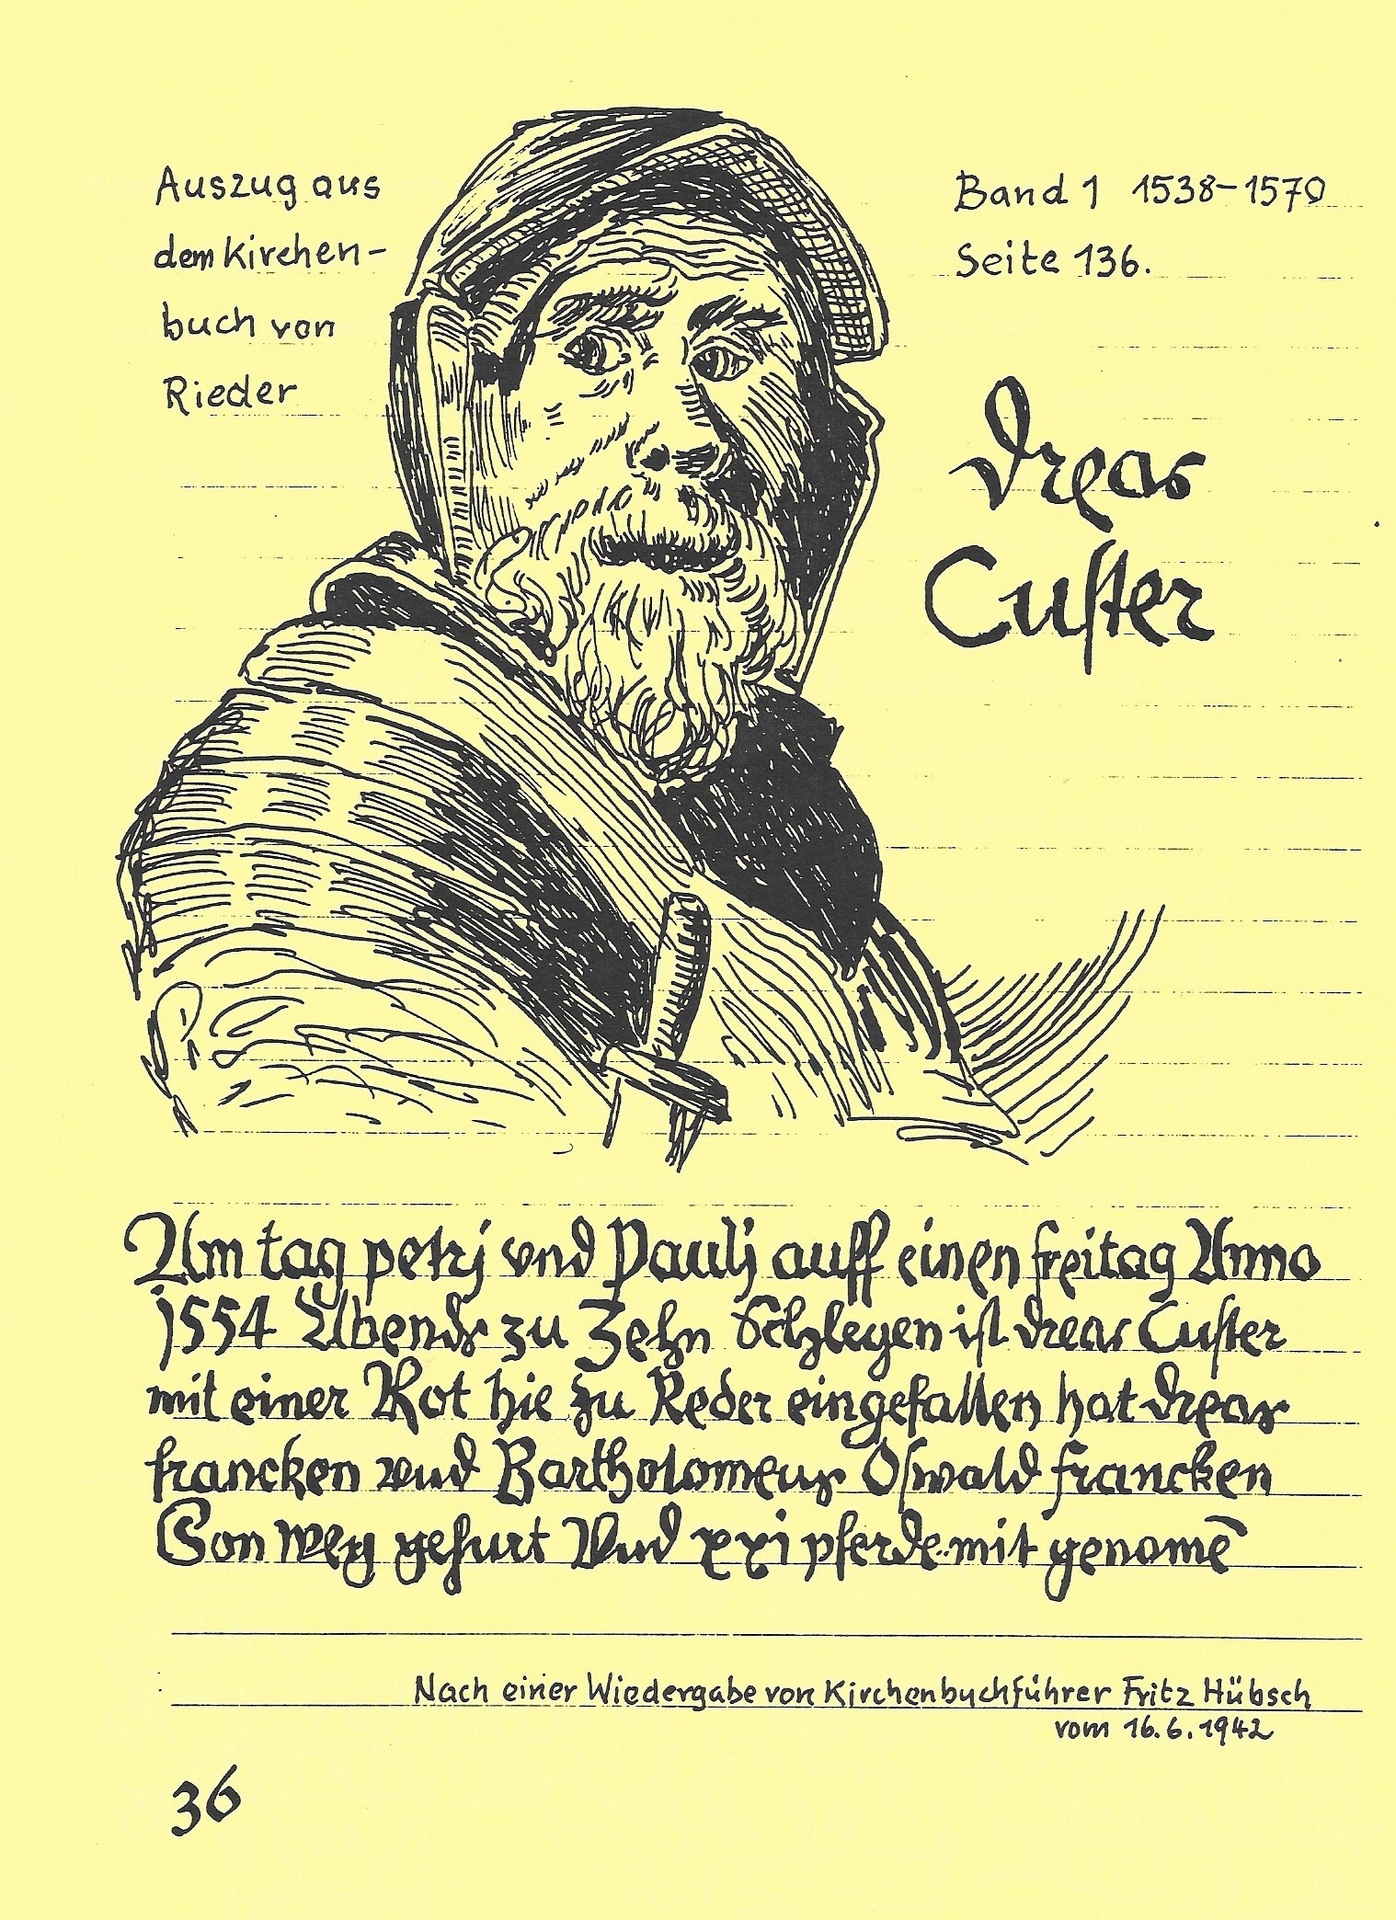 Auszug aus
dem Kirchen-
buch von
Rieder
Band 1 1538-1570
Seite 136.
dreas
Custer
Am tag petrj vnd Paulj auff einen freitag Anno
1554 Abends zu Zehn Schlegen ist dreas Custer
mit einer Rot hie zu Reder eingefallen hat dreas
francken vnd Bartholomeus Oswald francken
Son weg gefurt Vnd xxi pferde mit genomē
Nach einer Wiedergabe von Kirchenbuchführer Fritz Hübsch
vom 16.6.1942
36